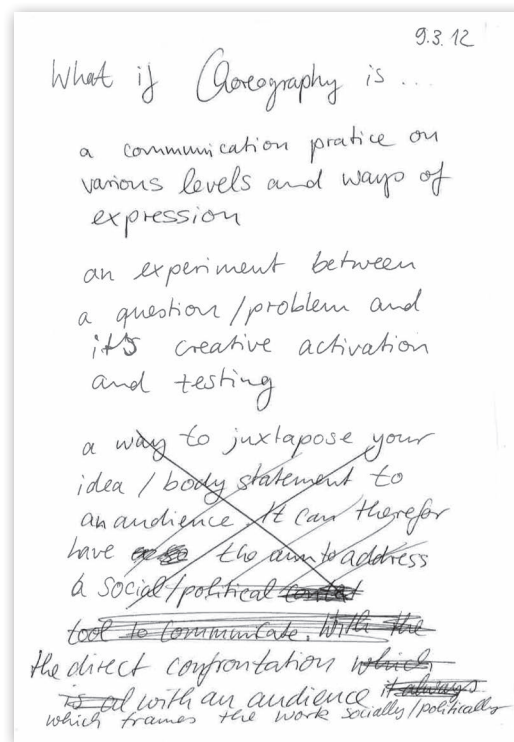 9.3.12
What if Choreography is ...
a communication pratice on
various levels and ways of
expression
an experiment between
a question/problem and
it's creative activation
and testing
a way to juxtapose your
idea / body statement to
an audience. It can therefor
have the aim to address
a social/political
tool to communicate. With the
the direct confrontation which
is with an audience it always
which frames the work socially/politically